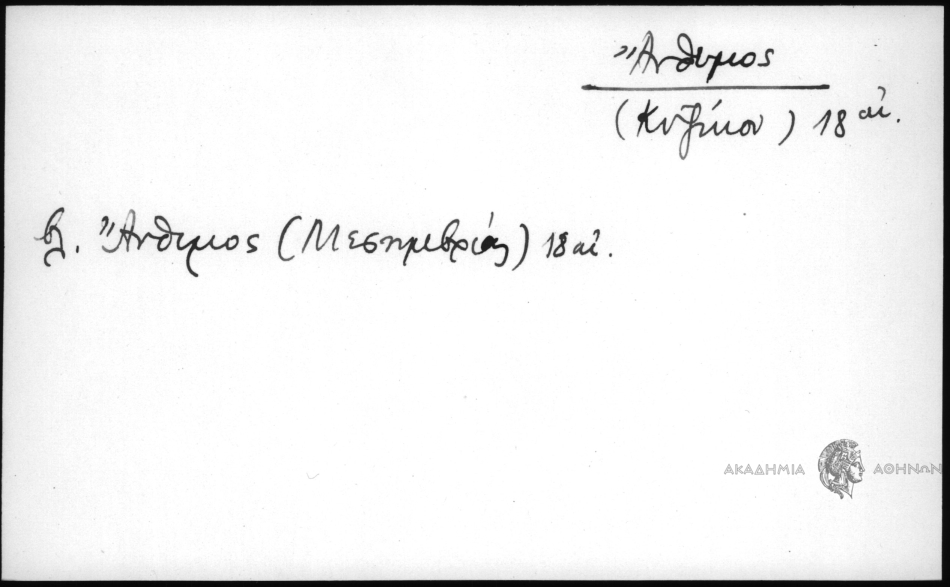 Ἄνθιμος
(Κυζίκου) 18 αἰ.
βλ. Ἄνθιμος (Μεσημβρίας) 18 αἰ.
ΑΚΑΔΗΜΙΑ ΑΘΗΝΩΝ